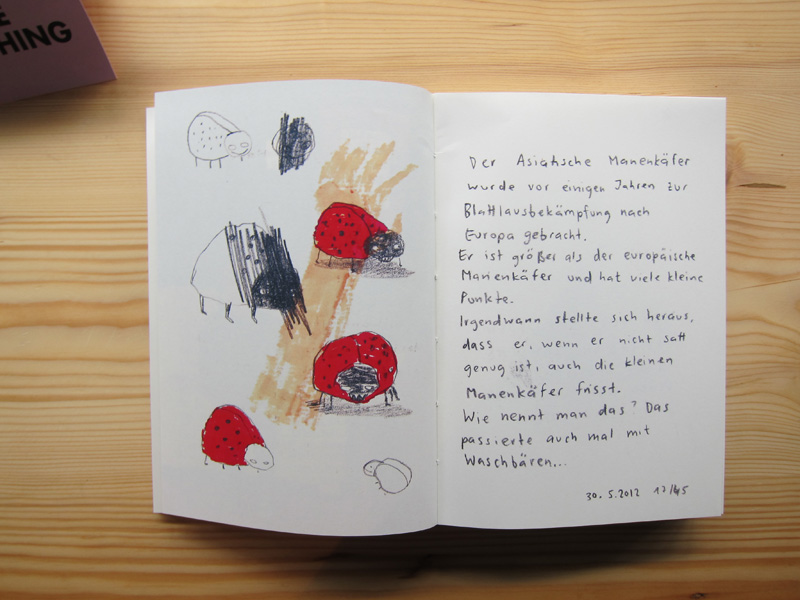 HING
Der Asiatische Marienkäfer
wurde vor einigen Jahren zur
Blattlausbekämpfung nach
Europa gebracht.
Er ist größer als der europäische
Marienkäfer und hat viele kleine
Punkte.
Irgendwann stellte sich heraus,
dass er, wenn er nicht satt
genug ist, auch die kleinen
Marienkäfer frisst.
Wie nennt man das? Das
passierte auch mal mit
Waschbären...
30. 5. 2012 17/45